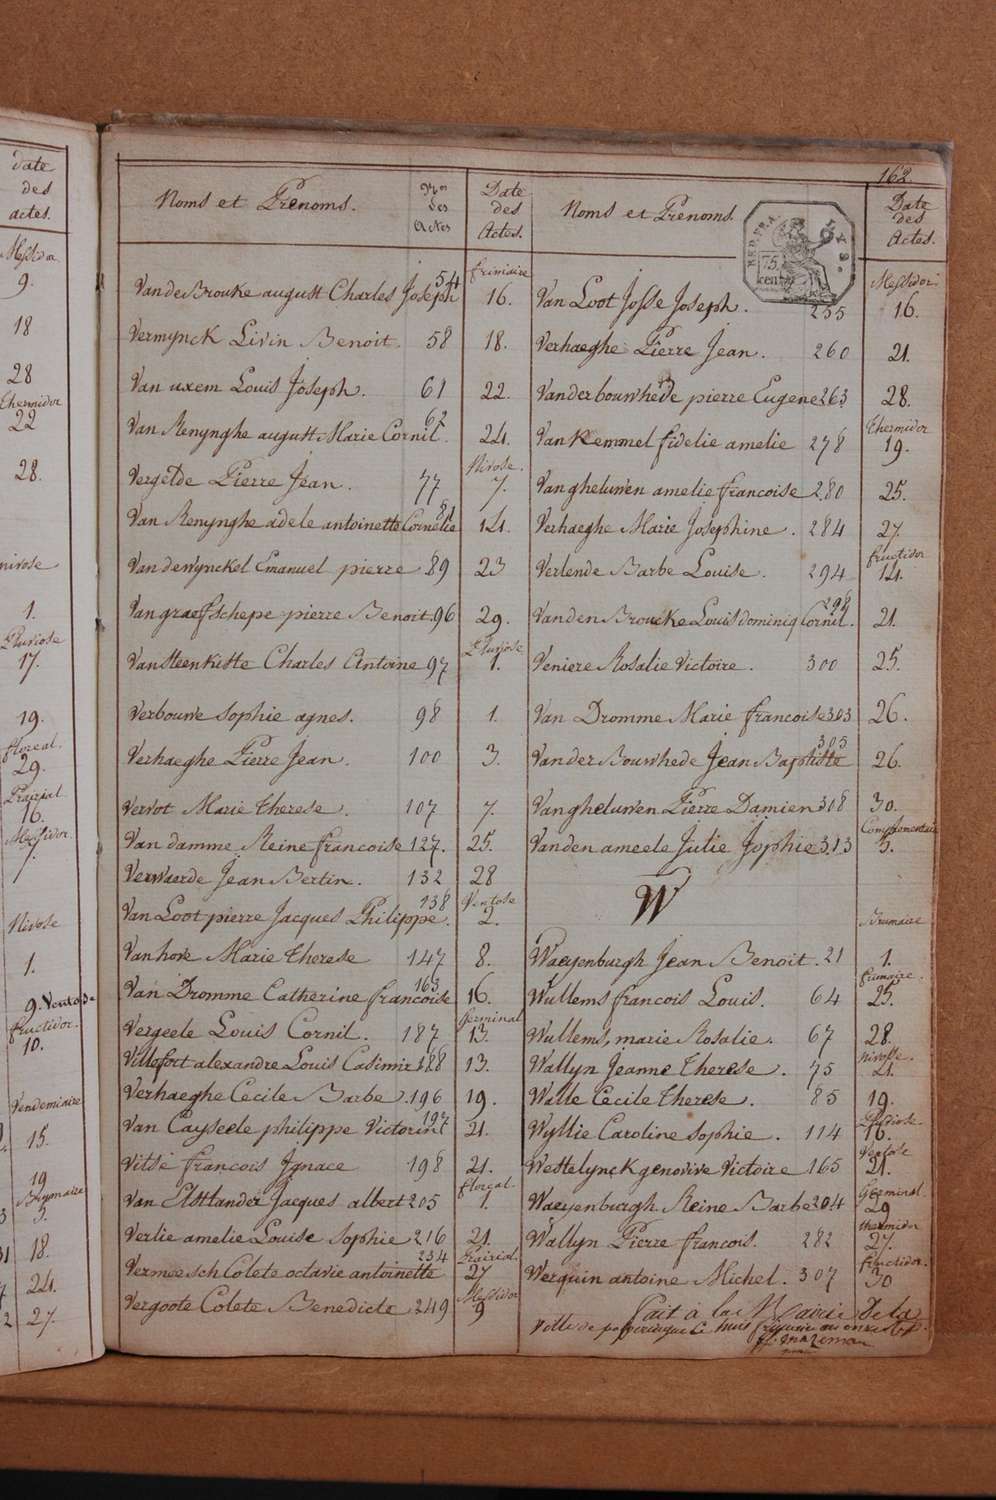 Date
des
actes.
Messidor
9.
18
28
Thermidor
22
28.
nivose
1.
Pluviose
17.
19.
floreal.
29.
Prairial
16.
Messidor
7.
Nivose
1.
9. Ventose
fructidor.
10.
Vendemiaire
15.
19
Brumaire
3.
18.
24.
27.
162
Noms et Prenoms. Nros des Actes Date des Actes.
frimaire
Van de Brouke august Charles Joseph 54 16.
Vermynck Livin Benoit. 58 18.
Van uxem Louis Joseph. 61 22.
Van Renynghe august Marie Cornil. 62 24.
Nivose.
Vergelde Pierre Jean. 77 7.
Van Renynghe adele antoinette Cornelie 81 14.
Van dewynckel Emanuel pierre 89 23
Van graefschepe pierre Benoit. 96 29.
Pluviose
Van Steenkiste Charles Antoine 97 1.
Verbouwe Sophie agnes. 98 1.
Verhaeghe Pierre Jean. 100 3.
Vervot Marie Therese. 107 7.
Van damme Reine francoise 127. 25.
Verwaerde Jean Bertin. 132 28
Ventose
Van Loot pierre Jacques Philippe. 138 2.
Vanhove Marie Therese 147 8.
Van Dromme Catherine francoise 163 16.
Germinal
Vergeele Louis Cornil. 187 13.
Villefort alexandre Louis Casimir 188 13.
Verhaeghe Cecile Barbe. 196 19.
Van Cayseele philippe Victorin 197 21.
Vitse francois Ignace 198 21.
floreal.
Van Elstlander Jacques albert 205 1.
Verlie amelie Louise Sophie 216 21.
Prairial.
Vermeesch Colete octavie antoinette 234 27
Messidor
Vergoote Colete Benedicte 249 9
Noms et Prenoms. Date des Actes.
REP. FRA.
75
cent
Messidor
Van Loot Josse Joseph. 255 16.
Verhaeghe Pierre Jean. 260 21.
Vanderbouwhede pierre Eugene 263 28.
Thermidor
Van Kemmel fidelie amelie 278 19.
Van gheluwen amelie francoise 280 25.
Verhaeghe Marie Josephine. 284 27.
fructidor
Verlende Barbe Louise. 294 14.
Vanden Broucke Louis dominiq Cornil. 298 21.
Veniere Rosalie Victoire. 300 25.
Van Dromme Marie francoise 303 26.
Vander Bouwhede Jean Baptiste 305 26.
Van gheluwen Pierre Damien 308 30.
Complementaire
Vanden ameele Julie Sophie 313 3.
W
Brumaire
Waeyenburgh Jean Benoit. 21 1.
frimaire.
Wullems francois Louis. 64 25.
Wullems, marie Rosalie. 67 28.
nivose.
Wallyn Jeanne Therese. 75 21.
Walle Cecile Therese. 85 19.
Pluviose
Wyllie Caroline Sophie. 114 16.
Ventose
Westelynck genovive Victoire 165 21.
Germinal.
Waeyenburgh Reine Barbe 204 29
thermidor
Wallyn Pierre francois. 282 27.
fructidor.
Werquin antoine Michel. 307 30
Fait à la Mairie De la
Ville de poperingue Ce huit frimaire an onze